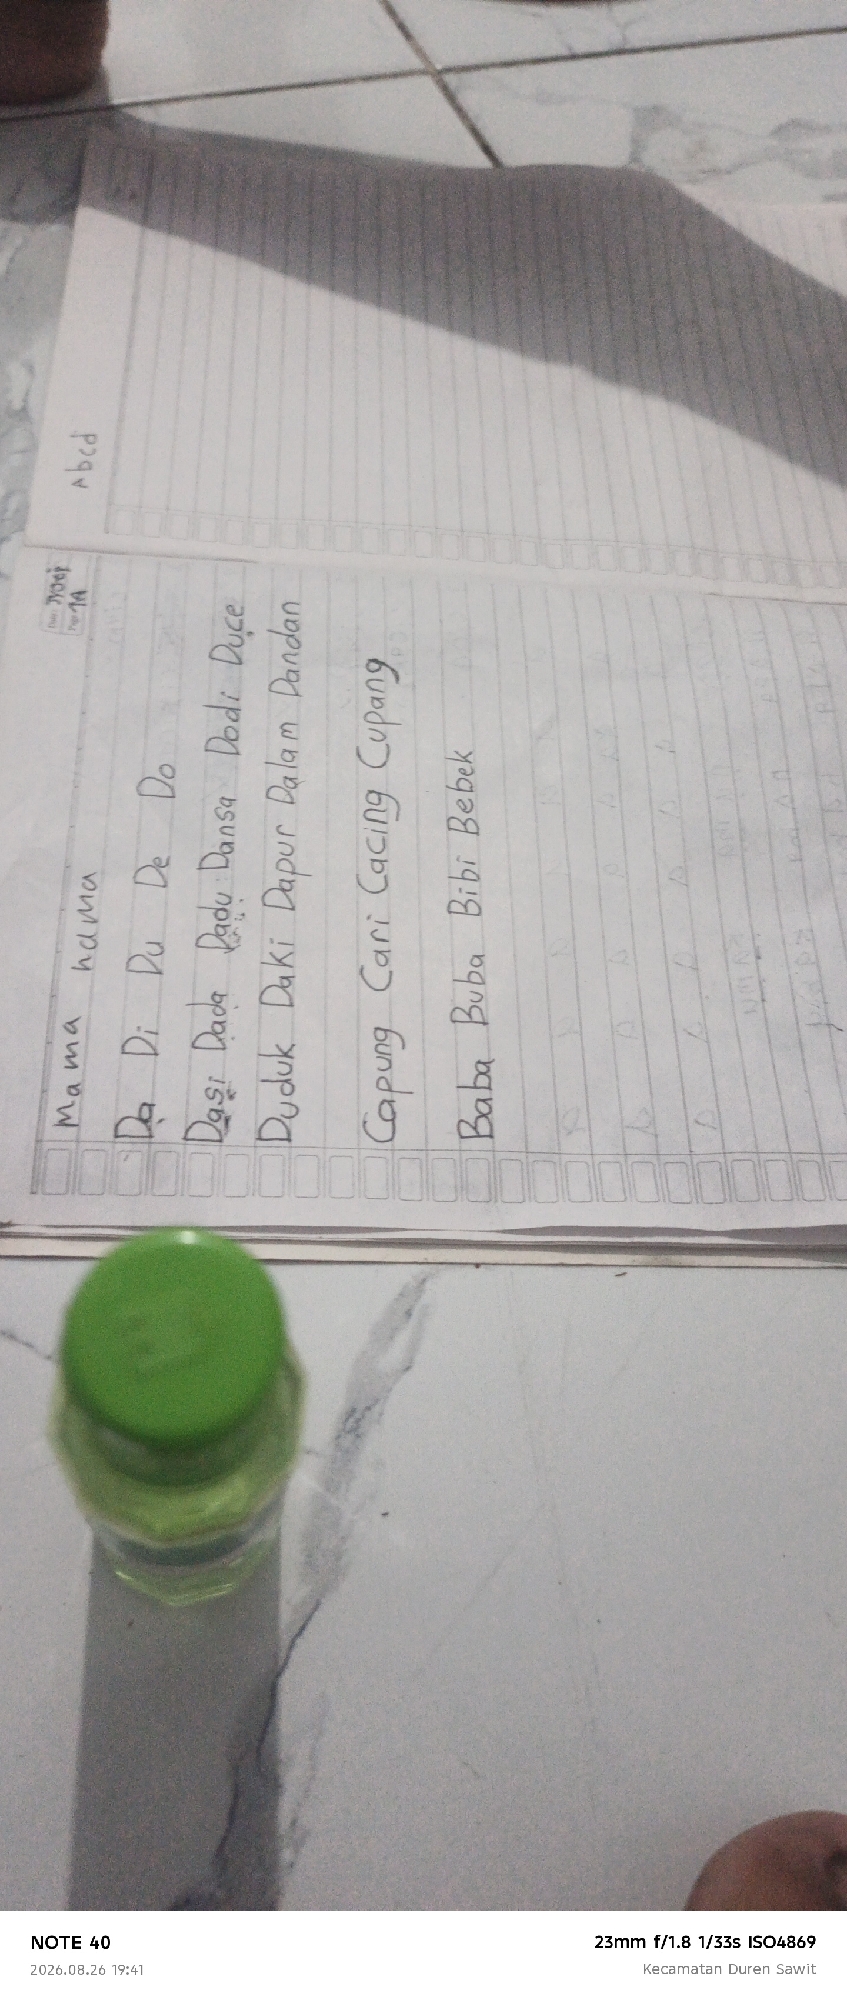 Mama nama
Da Di Du De Do
Dasi Dada Dadu Dansa Dodi Duce
Duduk Daki Dapur Dalam Dandan
Capung Cari Cacing Cupang
Baba Buba Bibi Bebek
Abcd
NOTE 40
2026.08.26 19:41
23mm f/1.8 1/33s ISO4869
Kecamatan Duren Sawit